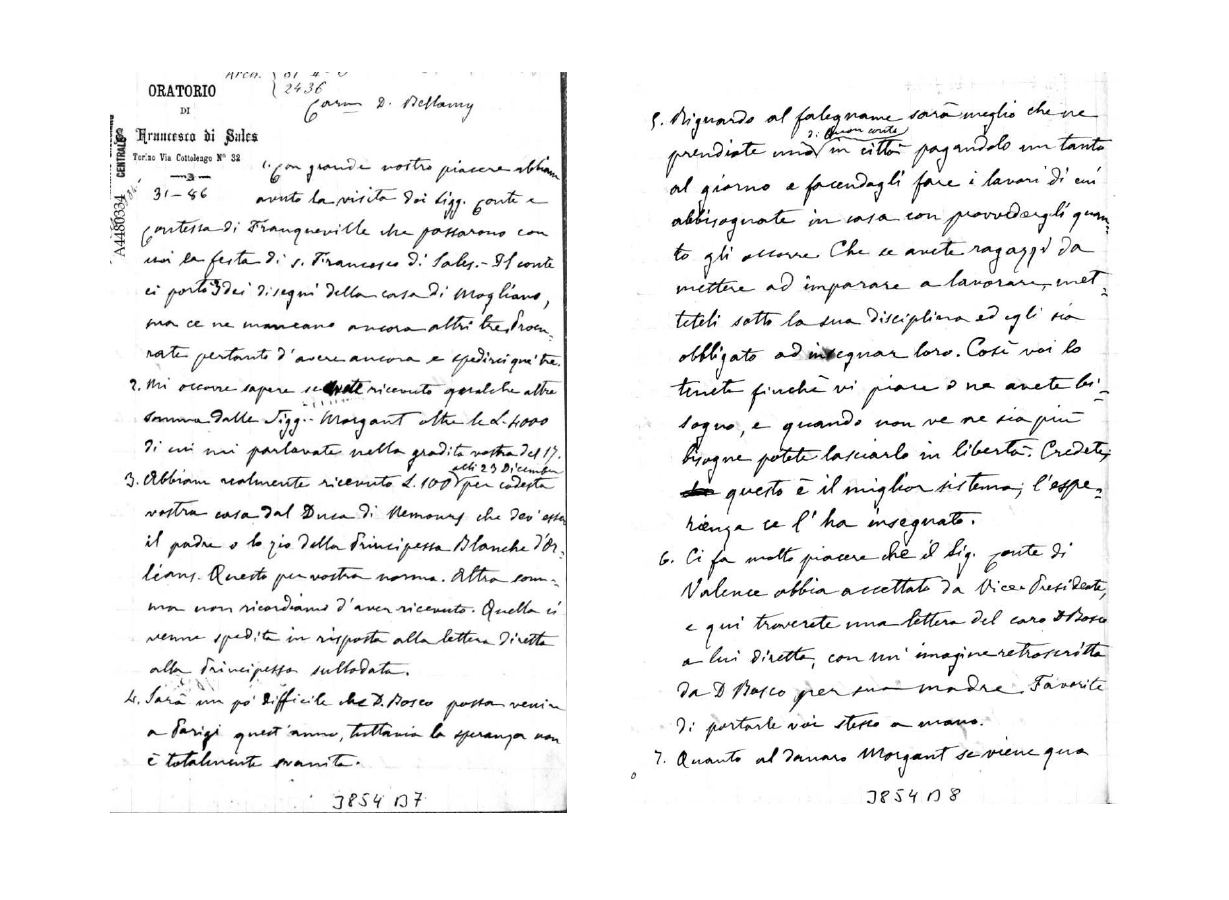 ORATORIO
DI
Francesco di Sales
Torino Via Cottolengo N° 32
CENTRALE
A4480334
Arch.
2436
Caro D. Bellamy
31-86
1. Con grande nostro piacere abbiam
avuto la visita dei Sigg. Conte e
Contessa di Franqueville che passarono con
noi la festa di S. Francesco di Sales.- Il conte
ci portò 3 dei disegni della casa di Mogliano,
ma ce ne mancano ancora altri tre. Procu-
rate pertanto d'avere ancora e spedirci que' tre.
2. Mi occorre sapere se avete ricevuto qualche altra
somma dalle Sigg. Morgant oltre le L. 4000
di cui mi parlavate nella gradita vostra del 17.
3. Abbiam realmente ricevuto L. 100 alli 23 Dicembre per codesta
vostra casa dal Duca di Nemours che dev'esser
il padre o lo zio della Principessa Blanche d'Or-
léans. Questo per vostra norma. Altra som-
ma non ricordiamo d'aver ricevuto. Quella ci
venne spedita in risposta alla lettera diretta
alla Principessa sullodata.
4. Sarà un po' difficile che D. Bosco possa venire
a Parigi quest'anno, tuttavia la speranza non
è totalmente svanita.
J854 B7
5. Riguardo al falegname sarà meglio che ne
prendiate uno di buon conto in città pagandolo un tanto
al giorno e facendagli fare i lavori di cui
abbisognate in casa con provvedergli quan-
to gli occorre. Che se avete ragazzi da
mettere ad imparare a lavorare, met-
teteli sotto la sua disciplina ed egli sia
obbligato ad insegnar loro. Così voi lo
tenete finchè vi piace o ne avete bi-
sogno, e quando non ve ne sia più
bisogne potete lasciarlo in libertà. Credete,
questo è il miglior sistema; l'espe-
rienza ce l'ha insegnato.
6. Ci fa molto piacere che il Sig. Conte di
Valence abbia accettato da Vice-Presidente,
e qui troverete una lettera del caro D Bosco
a lui diretta, con un'imagine retroscritta
da D Bosco per sua madre. Favorite
di portarle voi stesso a mano.
7. Quanto al danaro Morgant se viene qua
J854 B8